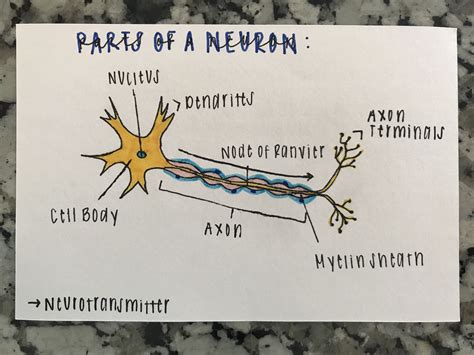 PARTS OF A NEURON:
NUCLEUS
Dendrites
AXON
Terminals
NODE OF RANVIER
Cell BODY
AXON
Myelin Sheath
→ Neurotransmitter